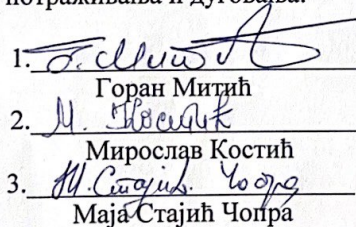 потраживања и дуговања.
1.
Горан Митић
2. М. Костић
Мирослав Костић
3. М. Стајић Чопра
Маја Стајић Чопра